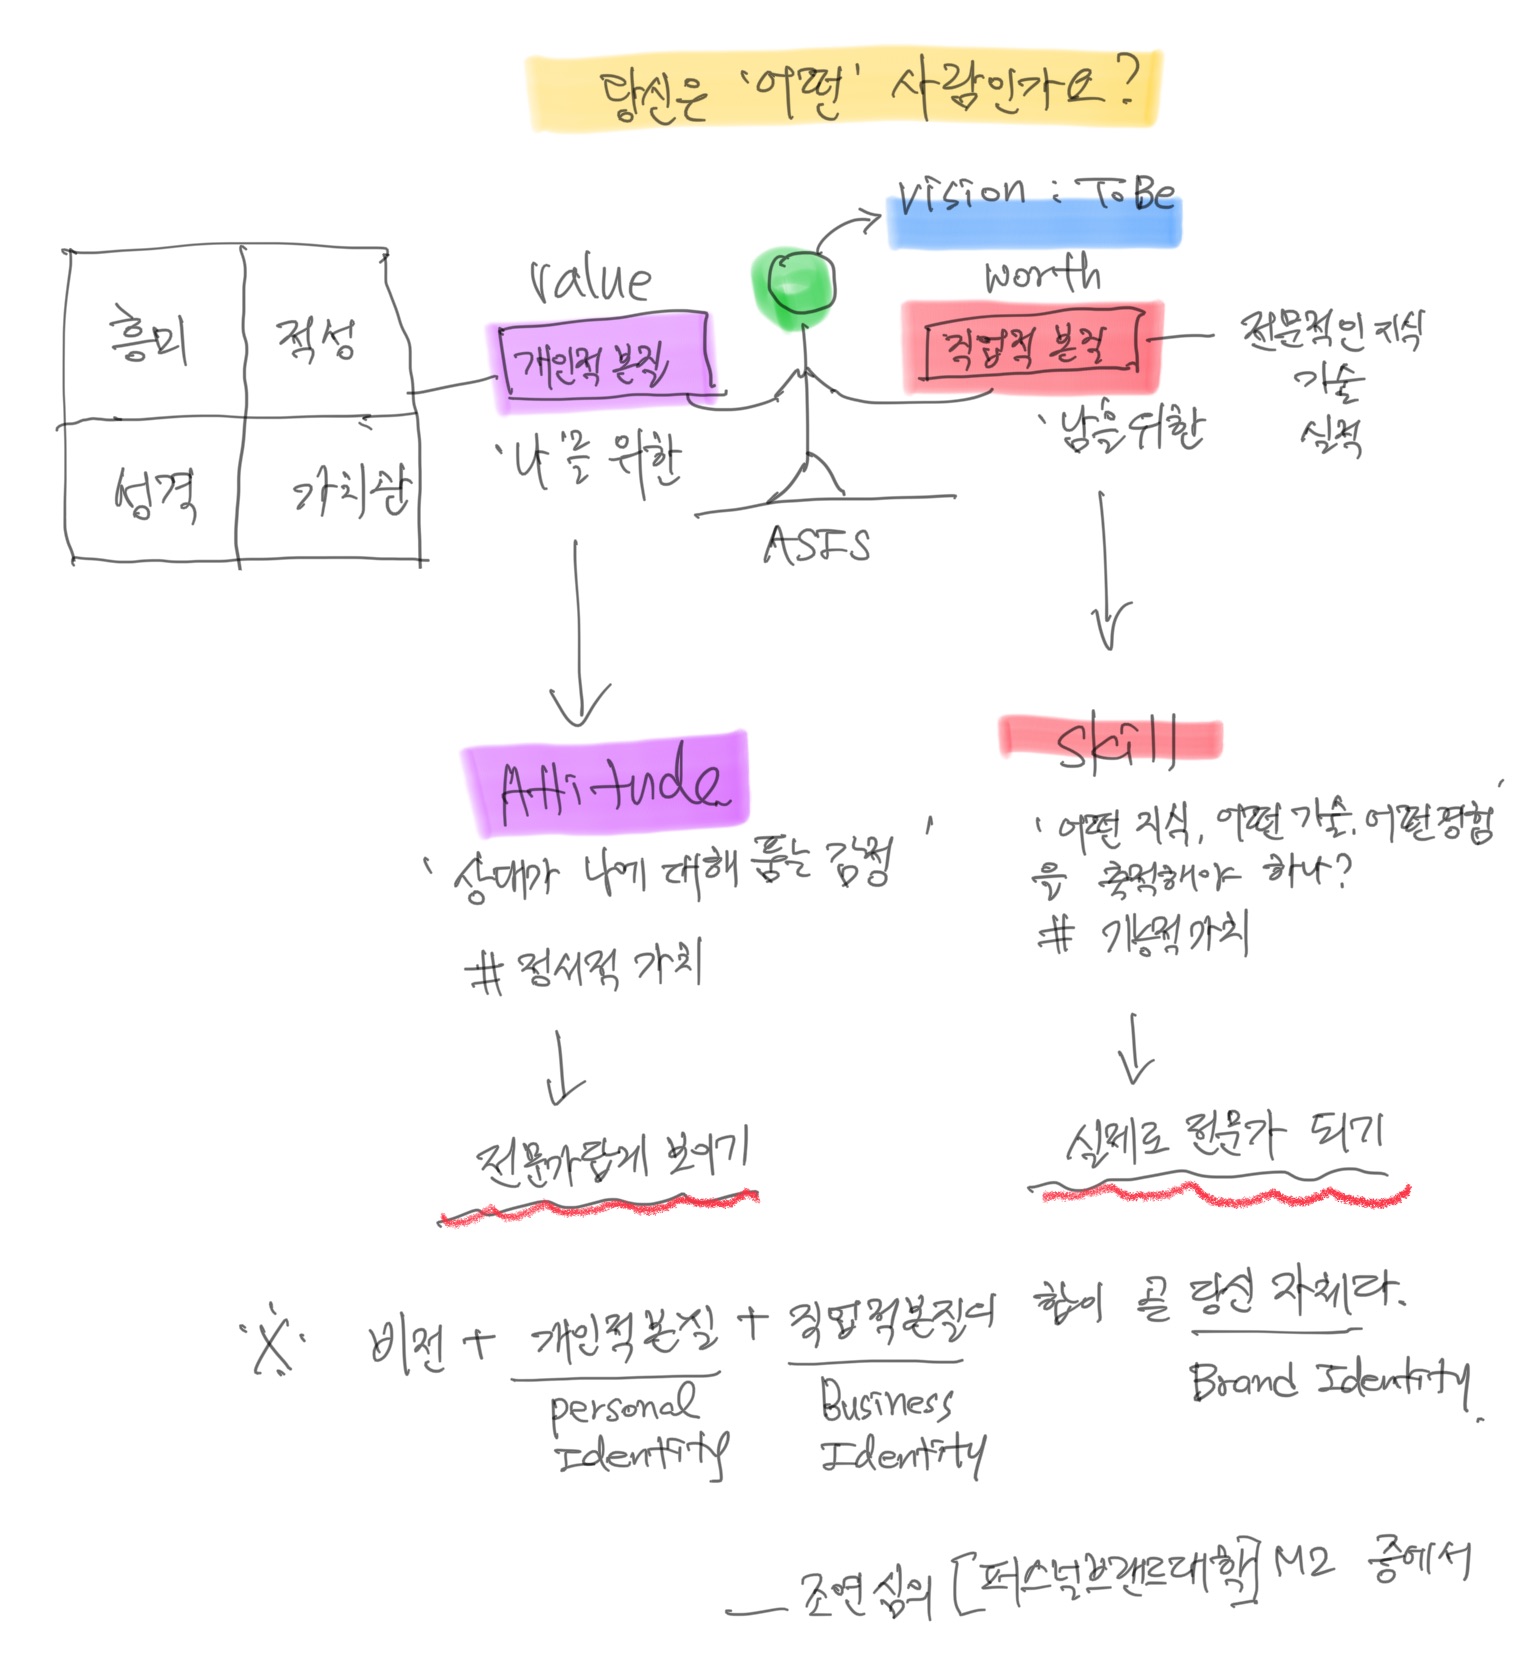 당신은 '어떤' 사람인가요?
vision : ToBe
value
worth
흥미
적성
성격
가치관
개인적 본질
'나'를 위한
직업적 본질
'남'을 위한
전문적인 지식
기술
실적
ASIS
Attitude
'상대가 나에 대해 품는 감정'
# 정서적 가치
전문가답게 보이기
Skill
'어떤 지식, 어떤 기술, 어떤 경험'
을 축적해야 하나?
# 기능적 가치
실제로 전문가 되기
※ 비전 + 개인적본질 + 직업적본질의 합이 곧 당신 자체다.
personal
Identity
Business
Identity
Brand Identity.
조연심의 [퍼스널브랜드대학] M2 중에서